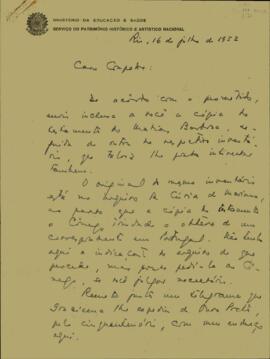 MINISTÉRIO DA EDUCAÇÃO E SAÚDE
SERVIÇO DO PATRIMÔNIO HISTÓRICO E ARTÍSTICO NACIONAL
Rio, 16 de julho de 1952
Caro
De acôrdo com o prometido,
envio inclusa a você a cópia do
testamento do Matias Barbosa, se-
guida de outra do respectivo inventá-
rio, que talvez lhe possa interessar
também.
O original do mesmo inventário
está no arquivo da Cúria de Mariana,
ao passo que a cópia do testamento
o Cônego obteve de um
correspondente em Portugal. Não tenho
aqui a indicação do arquivo de que
procede, mas posso pedi-la ao Cô-
nego, se você julgar necessário.
Remeto junto um telegrama que
lhe expediu de Ouro Preto,
pelo cinquentenário, com meu endereço
aqui.